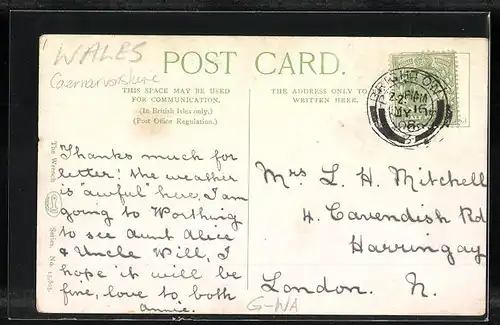 WALES
Caernarvonshire
POST CARD.
THIS SPACE MAY BE USED
FOR COMMUNICATION.
(In British Isles only.)
(Post Office Regulation.)
THE ADDRESS ONLY TO
WRITTEN HERE.
Thanks much for
letter! the weather
is "awful" here, I am
going to Worthing
to see Aunt Alice
& Uncle Will, I
hope it will be
fine, love to both
Annie.
The Wrench
Series, No.
Mrs L. H. Mitchell
4. Cavendish Rd
Harringay
London. N.
G-WA
BRIGHTON